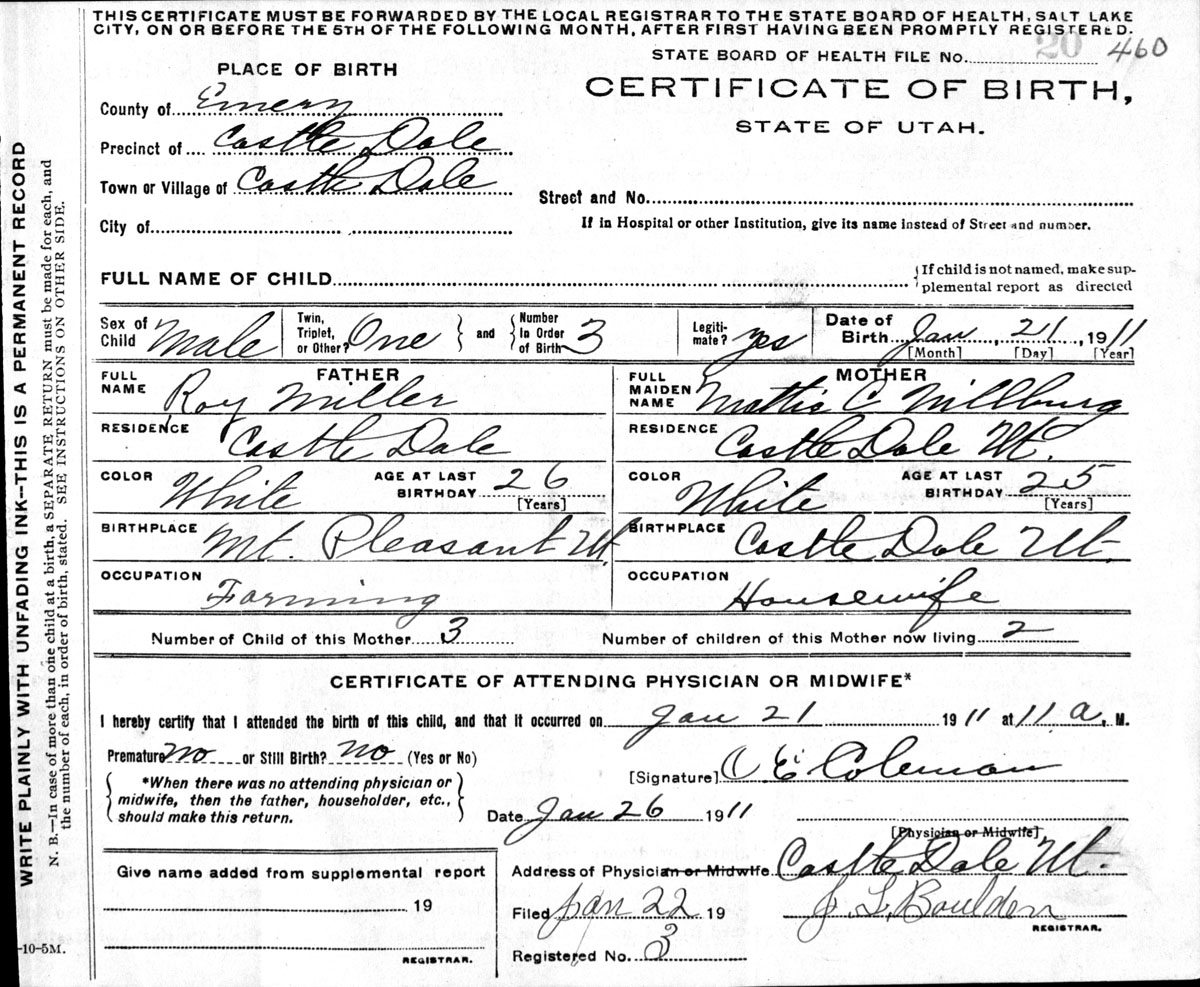 THIS CERTIFICATE MUST BE FORWARDED BY THE LOCAL REGISTRAR TO THE STATE BOARD OF HEALTH, SALT LAKE
CITY, ON OR BEFORE THE 5TH OF THE FOLLOWING MONTH, AFTER FIRST HAVING BEEN PROMPTLY REGISTERED.
STATE BOARD OF HEALTH FILE No. 20 460
PLACE OF BIRTH
CERTIFICATE OF BIRTH,
STATE OF UTAH.
County of Emery
Precinct of Castle Dale
Town or Village of Castle Dale
Street and No.
City of
If in Hospital or other Institution, give its name instead of Street and number.
FULL NAME OF CHILD
{If child is not named, make sup-
plemental report as directed
Sex of Child Male
Twin, Triplet, or Other? One
and
Number In Order of Birth 3
Legiti-mate? yes
Date of Birth Jan, 21, 1911
[Month] [Day] [Year]
FATHER
FULL NAME Roy Miller
RESIDENCE Castle Dale
COLOR White AGE AT LAST BIRTHDAY 26
[Years]
BIRTHPLACE Mt. Pleasant Ut.
OCCUPATION Farming
MOTHER
FULL MAIDEN NAME Mattie C
RESIDENCE Castle Dale Ut.
COLOR White AGE AT LAST BIRTHDAY 25
[Years]
BIRTHPLACE Castle Dale Ut.
OCCUPATION Housewife
Number of Child of this Mother 3 Number of children of this Mother now living 2
CERTIFICATE OF ATTENDING PHYSICIAN OR MIDWIFE*
I hereby certify that I attended the birth of this child, and that it occurred on Jan 21 1911 at 11 a, M.
Premature no or Still Birth? no (Yes or No)
*When there was no attending physician or
midwife, then the father, householder, etc.,
should make this return.
[Signature] O E Coleman
Date Jan 26 1911
[Physician or Midwife]
Give name added from supplemental report
19
REGISTRAR.
Address of Physician or Midwife Castle Dale Ut.
Filed Jan 22 19 J. L. Boulden
REGISTRAR.
Registered No. 3
WRITE PLAINLY WITH UNFADING INK--THIS IS A PERMANENT RECORD
N. B.—In case of more than one child at a birth, a SEPARATE RETURN must be made for each, and
the number of each, in order of birth, stated. SEE INSTRUCTIONS ON OTHER SIDE.
-10-5M.